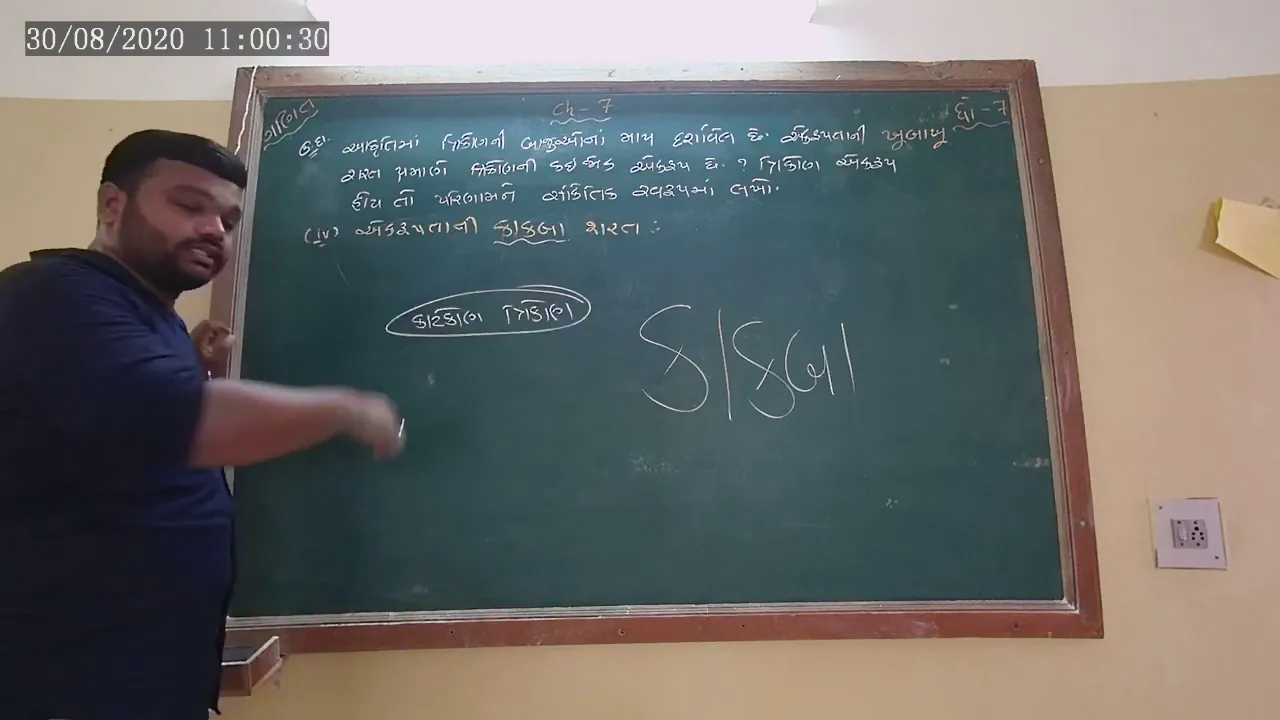 30/08/2020 11:00:30
ગણિત
Ch - 7
ધો - 7
ઉ.દા. આકૃતિમાં ત્રિકોણની બાજુઓનાં માપ દર્શાવેલ છે. એકરૂપતાની ખૂબાખૂ
શરત પ્રમાણે ત્રિકોણની કઈ જોડ એકરૂપ છે. ? ત્રિકોણ એકરૂપ
હોય તો પરિણામને સાંકેતિક સ્વરૂપમાં લખો.
(iv) એકરૂપતાની કાકબા શરત :
કાટકોણ ત્રિકોણ
કાકબા